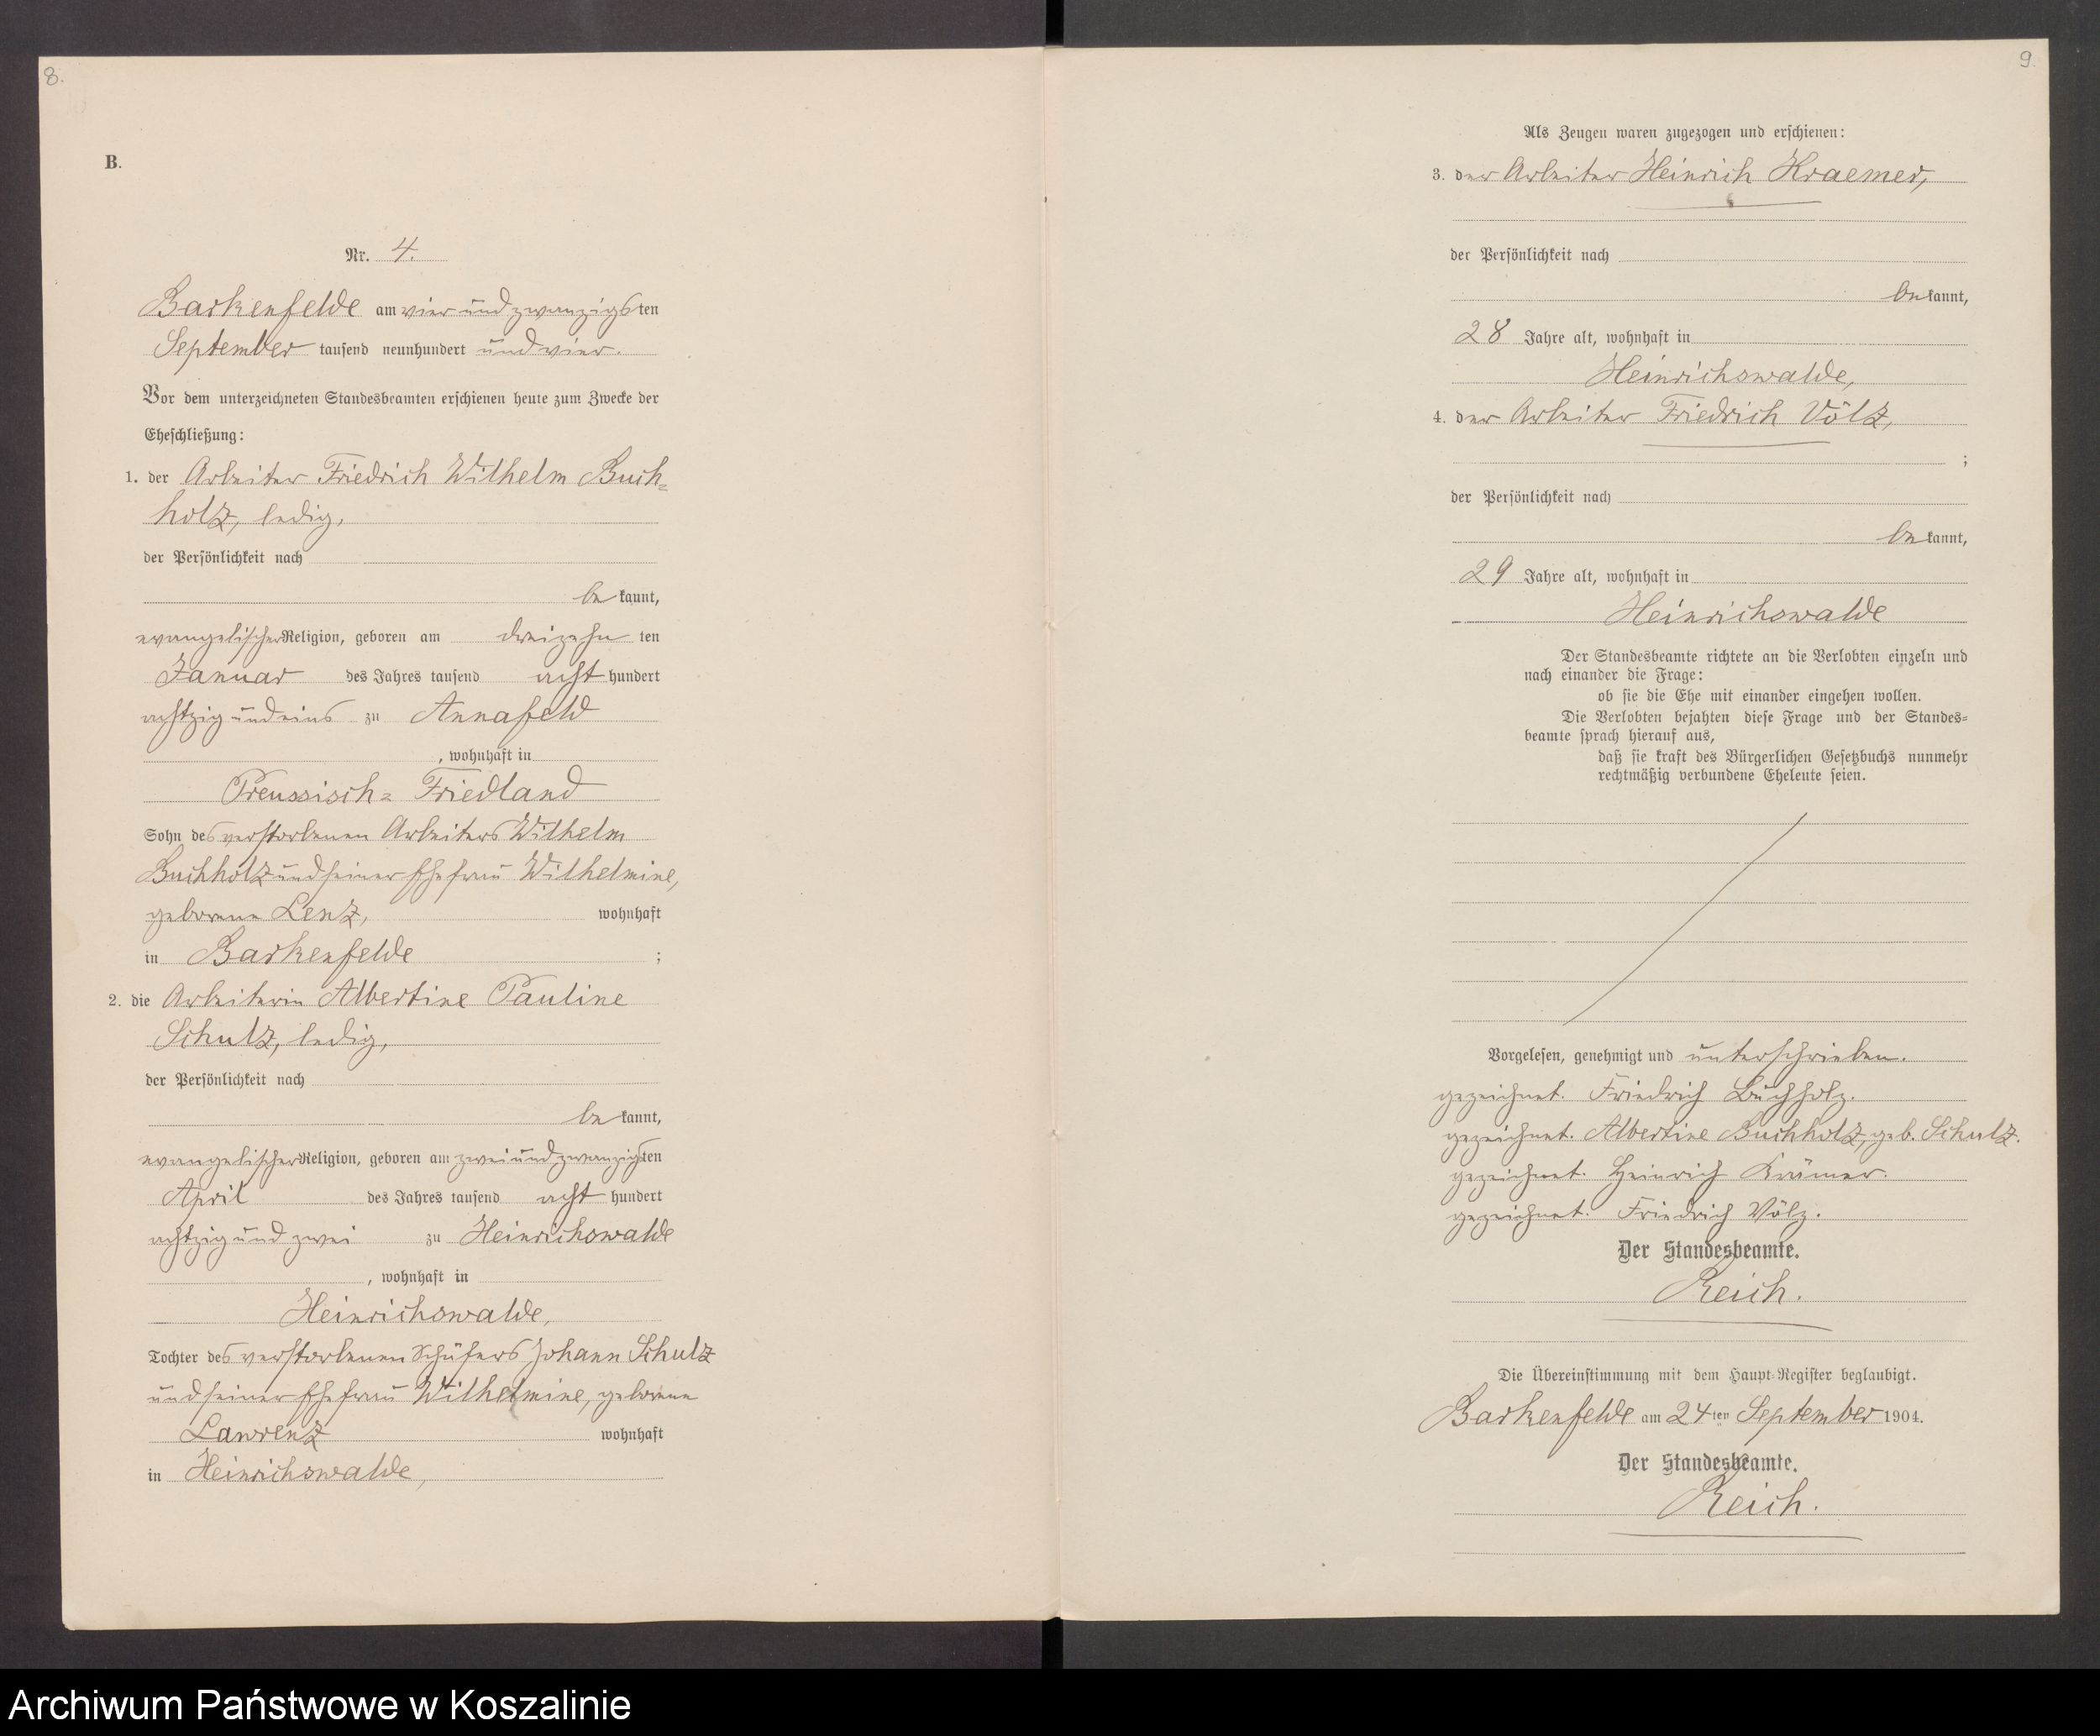 8.
B.
Nr. 4.
Barkenfelde am vier und zwanzigsten
September tausend neunhundert und vier.
Vor dem unterzeichneten Standesbeamten erschienen heute zum Zwecke der
Eheschließung:
1. der Arbeiter Friedrich Wilhelm Buch=
holz, ledig,
der Persönlichkeit nach
be kannt,
evangelischer Religion, geboren am dreizehn ten
Januar des Jahres tausend acht hundert
achtzig und eins zu Annafeld
, wohnhaft in
Preussisch= Friedland
Sohn des verstorbenen Arbeiters Wilhelm
Buchholz und seiner Ehefrau Wilhelmine,
geborene Lenz, wohnhaft
in Barkenfelde ;
2. die Arbeiterin Albertine Pauline
Schulz, ledig,
der Persönlichkeit nach
be kannt,
evangelischer Religion, geboren am zwei und zwanzigsten
April des Jahres tausend acht hundert
achtzig und zwei zu Heinrichswalde
, wohnhaft in
Heinrichswalde,
Tochter des verstorbenen Schäfers Johann Schulz
und seiner Ehefrau Wilhelmine, geborene
Lawrenz wohnhaft
in Heinrichswalde,
9.
Als Zeugen waren zugezogen und erschienen:
3. der Arbeiter Heinrich Kraemer,
der Persönlichkeit nach
be kannt,
28 Jahre alt, wohnhaft in
Heinrichswalde,
4. der Arbeiter Friedrich Völz,
;
der Persönlichkeit nach
be kannt,
29 Jahre alt, wohnhaft in
Heinrichswalde
Der Standesbeamte richtete an die Verlobten einzeln und
nach einander die Frage:
ob sie die Ehe mit einander eingehen wollen.
Die Verlobten bejahten diese Frage und der Standes=
beamte sprach hierauf aus,
daß sie kraft des Bürgerlichen Gesetzbuchs nunmehr
rechtmäßig verbundene Eheleute seien.
Vorgelesen, genehmigt und unterschrieben.
gezeichnet. Friedrich Buchholz.
gezeichnet. Albertine Buchholz, geb. Schulz.
gezeichnet. Heinrich Krämer.
gezeichnet. Friedrich Völz.
Der Standesbeamte.
Reich.
Die Übereinstimmung mit dem Haupt-Register beglaubigt.
Barkenfelde am 24 ten September 1904.
Der Standesbeamte.
Reich.
Archiwum Państwowe w Koszalinie